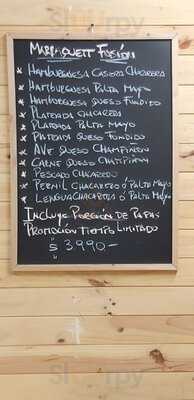 Marraquett Fusión
* Hamburguesa Casera Chacarera
* Hamburguesa Palta Mayo
* Hamburguesa Queso Fundido
* Plateada Chacarera
* Plateada Palta Mayo
* Plateada Queso Fundido
* Ave Queso Champiñon
* Carne Queso Champiñon
* Pescado Chacarero
* Pernil Chacarero ó Palta Mayo
* Lengua Chacarero ó Palta Mayo
Incluye Porción de Papas
Promoción Tiempo Limitado
$ 3.990-
Sluurpy